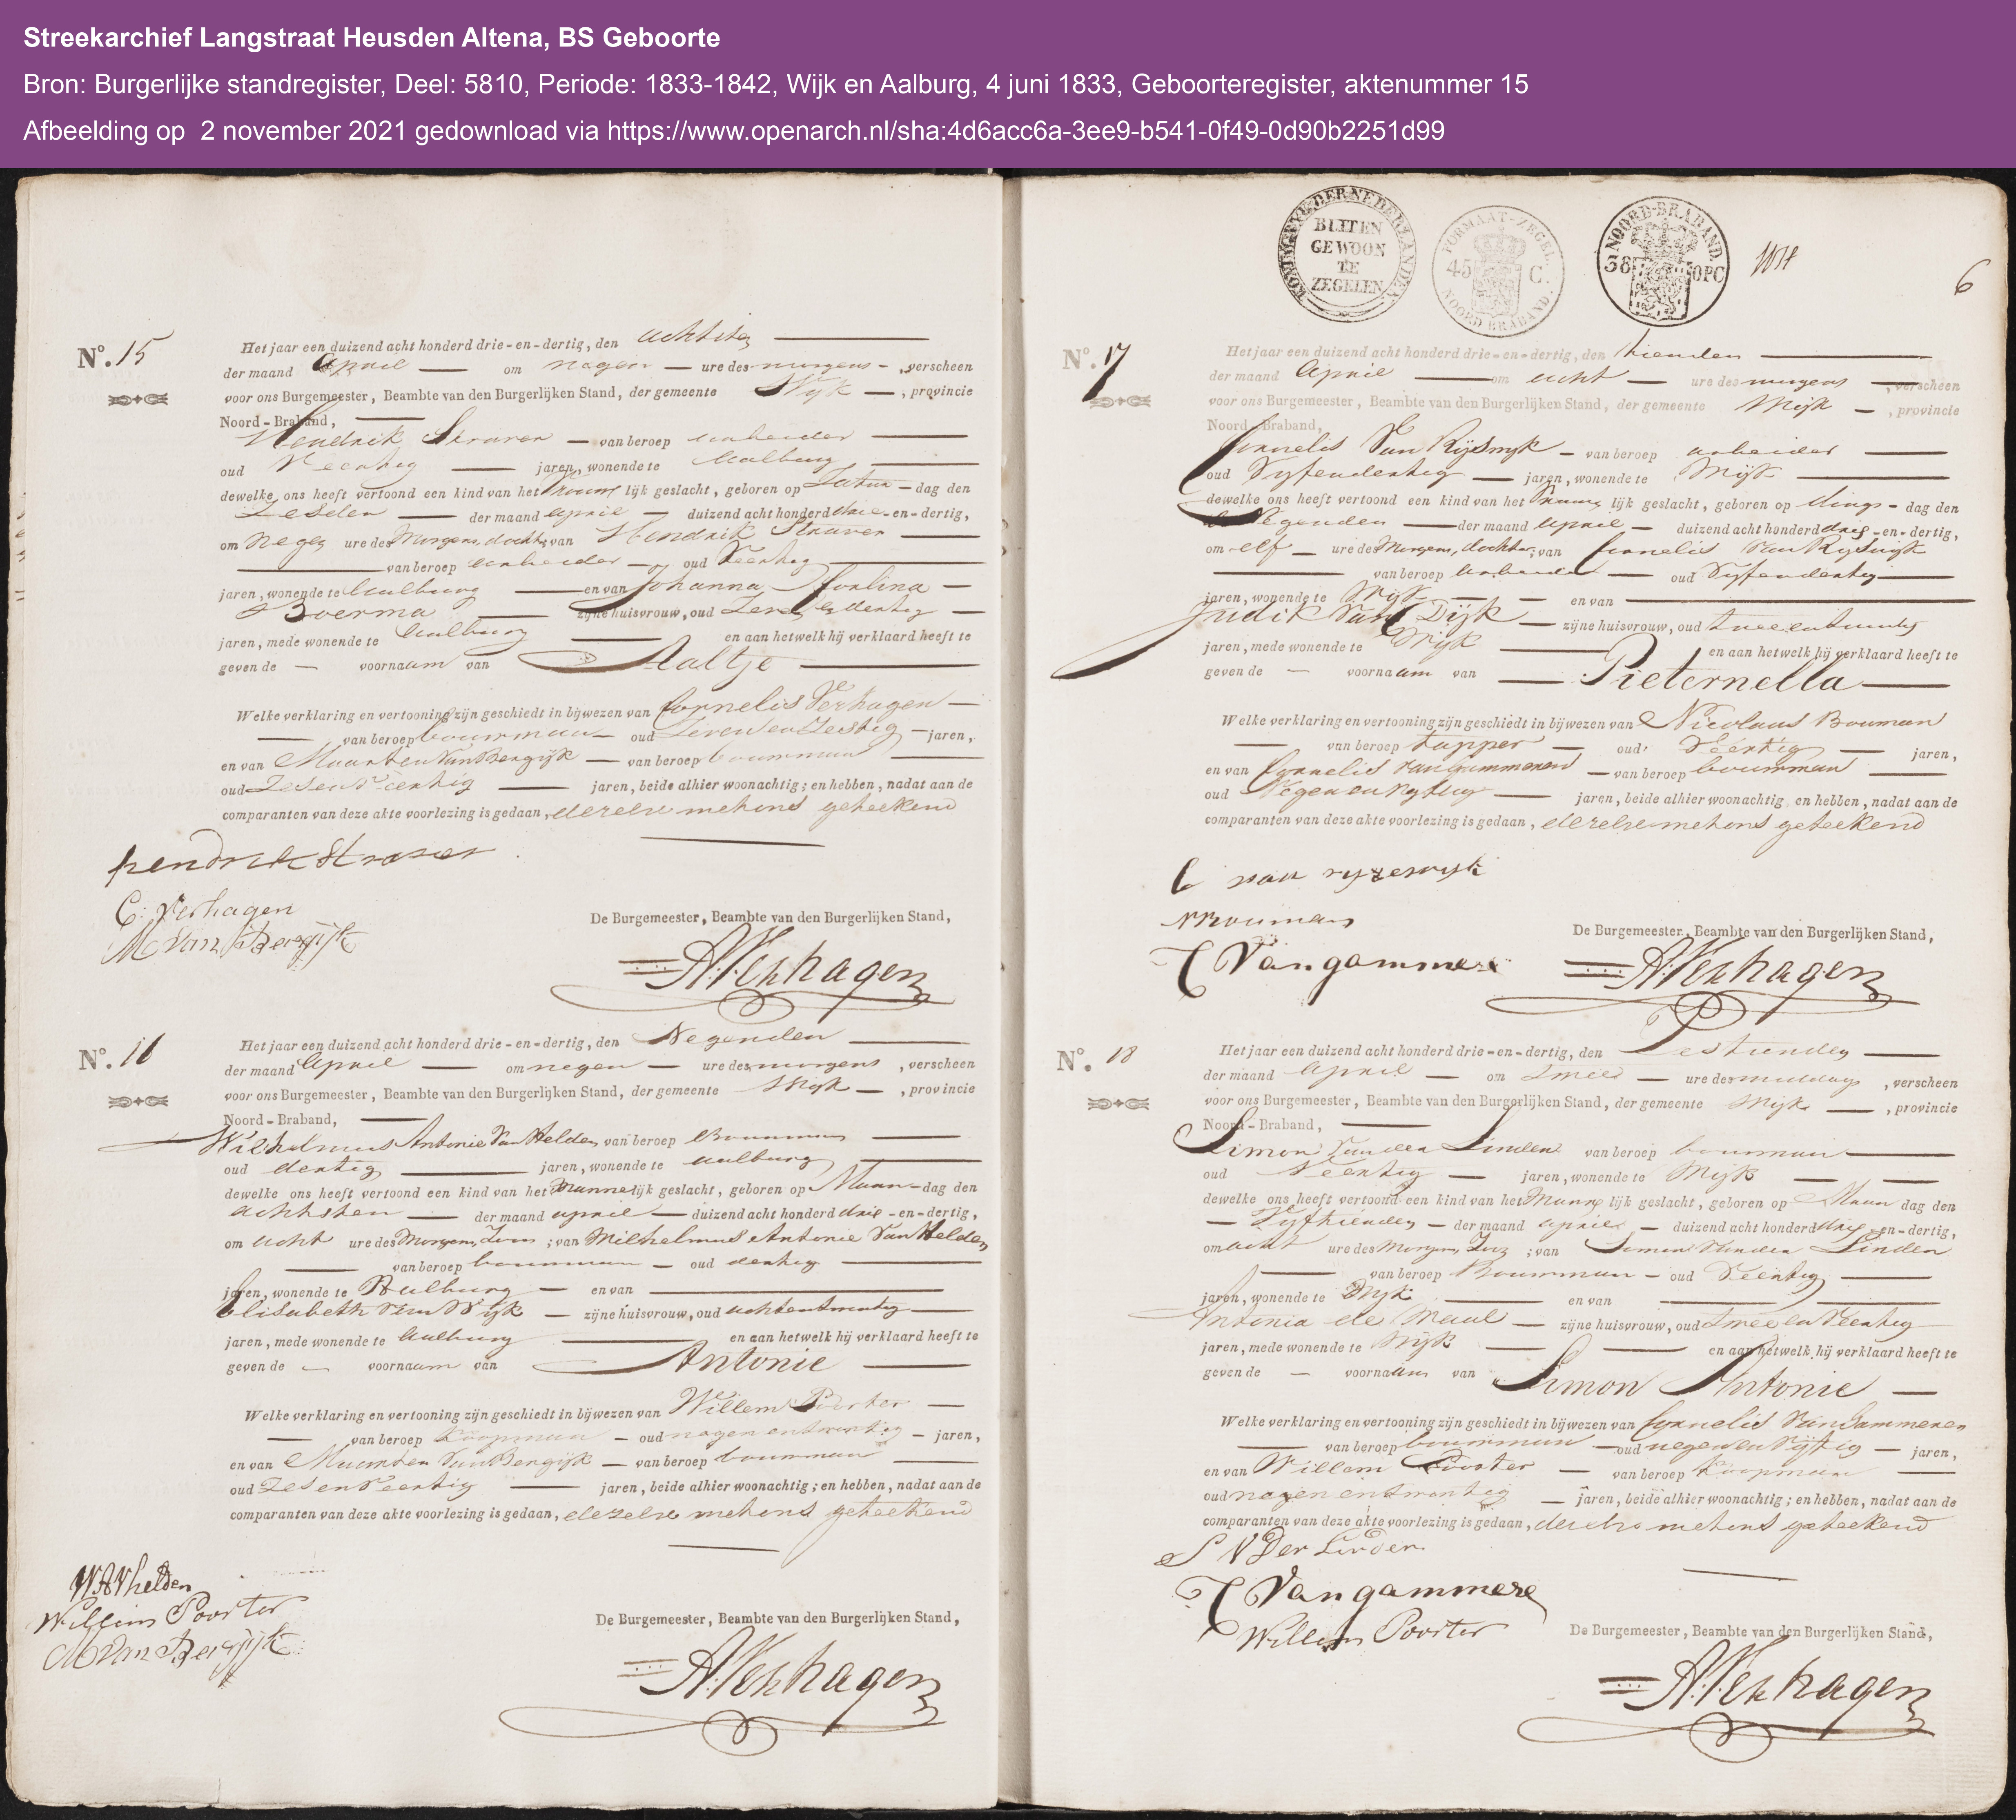 Streekarchief Langstraat Heusden Altena, BS Geboorte
Bron: Burgerlijke standregister, Deel: 5810, Periode: 1833-1842, Wijk en Aalburg, 4 juni 1833, Geboorteregister, aktenummer 15
Afbeelding op 2 november 2021 gedownload via https://www.openarch.nl/sha:4d6acc6a-3ee9-b541-0f49-0d90b2251d99
No. 15
Het jaar een duizend acht honderd drie-en-dertig, den achtsten
der maand April om negen ure des morgens, verscheen
voor ons Burgemeester, Beambte van den Burgerlijken Stand, der gemeente Wijk, provincie
Noord-Braband,
Hendrik Straver van beroep arbeider
oud Veertig jaren, wonende te Aalburg
dewelke ons heeft vertoond een kind van het Vrouwelijk geslacht, geboren op Zaturdag den
Zesden der maand april duizend acht honderd drie-en-dertig,
om negen ure des Morgens, dochter, van Hendrik Straver
van beroep arbeider oud Veertig
jaren, wonende te Aalburg en van Johanna Carlina
Boerma zijne huisvrouw, oud Zeven en dertig
jaren, mede wonende te Aalburg en aan hetwelk hij verklaard heeft te
geven de voornaam van Aaltje
Welke verklaring en vertooning zijn geschiedt in bijwezen van Cornelis Verhagen
van beroep bouwman oud Zeven en Zestig jaren,
en van Maarten Van Bergijk van beroep bouwman
oud Zes en Veertig jaren, beide alhier woonachtig; en hebben, nadat aan de
comparanten van deze akte voorlezing is gedaan, dezelve met ons geteekend
hendrik Straver
C: Verhagen
M Van Bergijk
De Burgemeester, Beambte van den Burgerlijken Stand,
A. Verhagen
No. 16
Het jaar een duizend acht honderd drie-en-dertig, den Negenden
der maand April om negen ure des morgens, verscheen
voor ons Burgemeester, Beambte van den Burgerlijken Stand, der gemeente Wijk, provincie
Noord-Braband,
Wilhelmus Antonie Van Helden van beroep Bouwman
oud dertig jaren, wonende te Aalburg
dewelke ons heeft vertoond een kind van het Mannelijk geslacht, geboren op Maandag den
achtsten der maand april duizend acht honderd drie-en-dertig,
om acht ure des Morgens, Zoon; van Wilhelmus Antonie Van Helden
van beroep bouwman oud dertig
jaren, wonende te Aalburg en van
Elisabeth Van Wijk zijne huisvrouw, oud achtentwintig
jaren, mede wonende te Aalburg en aan hetwelk hij verklaard heeft te
geven de voornaam van Antonie
Welke verklaring en vertooning zijn geschiedt in bijwezen van Willem Poorter
van beroep Koopman oud negen en twintig jaren,
en van Maarten Van Bergijk van beroep bouwman
oud Zes en Veertig jaren, beide alhier woonachtig; en hebben, nadat aan de
comparanten van deze akte voorlezing is gedaan, dezelve met ons geteekend
W A V helden
Willem Poorter
M Van Bergijk
De Burgemeester, Beambte van den Burgerlijken Stand,
A. Verhagen
KONINGRYK DER NEDERLANDEN
BUITEN
GEWOON
TE
ZEGELEN
FORMAAT-ZEGEL
45 C.
NOORD BRABAND.
NOORD-BRABAND
38 OPC
6
No. 17
Het jaar een duizend acht honderd drie-en-dertig, den tienden
der maand April om acht ure des morgens, verscheen
voor ons Burgemeester, Beambte van den Burgerlijken Stand, der gemeente Wijk, provincie
Noord-Braband,
Cornelis Van Rijswyk van beroep arbeider
oud Vyfendertig jaren, wonende te Wijk
dewelke ons heeft vertoond een kind van het Vrouwelijk geslacht, geboren op dingsdag den
Negenden der maand april duizend acht honderd drie-en-dertig,
om elf ure des Morgens, dochter, van Cornelis Van Ryswijk
van beroep arbeider oud Vyfendertig
jaren, wonende te Wijk en van
Judik Van Dijk zijne huisvrouw, oud tweeentwintig
jaren, mede wonende te Wijk en aan hetwelk hij verklaard heeft te
geven de voornaam van Pieternella
Welke verklaring en vertooning zijn geschiedt in bijwezen van Nicolaas Bouman
van beroep tapper oud Veertig jaren,
en van Cornelis van Gammeren van beroep bouwman
oud Negen en Vyftig jaren, beide alhier woonachtig en hebben, nadat aan de
comparanten van deze akte voorlezing is gedaan, dezelve met ons geteekend
C van ryzewyk
N Bouman
C Van gammere
De Burgemeester, Beambte van den Burgerlijken Stand,
A. Verhagen
No. 18
Het jaar een duizend acht honderd drie-en-dertig, den Zestienden
der maand April om twee ure des middags, verscheen
voor ons Burgemeester, Beambte van den Burgerlijken Stand, der gemeente Wijk, provincie
Noord-Braband,
Simon Van der Linden van beroep bouwman
oud Veertig jaren, wonende te Wijk
dewelke ons heeft vertoond een kind van het Mannelijk geslacht, geboren op Maandag den
Vyftienden der maand april duizend acht honderd drie-en-dertig,
om acht ure des Morgens, Zoon; van Simon Van der Linden
van beroep Bouwman oud Veertig
jaren, wonende te Wijk en van
Antonia de Maal zijne huisvrouw, oud twee en Veertig
jaren, mede wonende te Wijk en aan hetwelk hij verklaard heeft te
geven de voornaam van Simon Antonie
Welke verklaring en vertooning zijn geschiedt in bijwezen van Cornelis Van Gammeren
van beroep bouwman oud negen en Vijftig jaren,
en van Willem Poorter van beroep Koopman
oud negen en twintig jaren, beide alhier woonachtig; en hebben, nadat aan de
comparanten van deze akte voorlezing is gedaan, dezelve met ons geteekend
S V Der Linden
C Van gammere
Willem Poorter
De Burgemeester, Beambte van den Burgerlijken Stand,
A. Verhagen